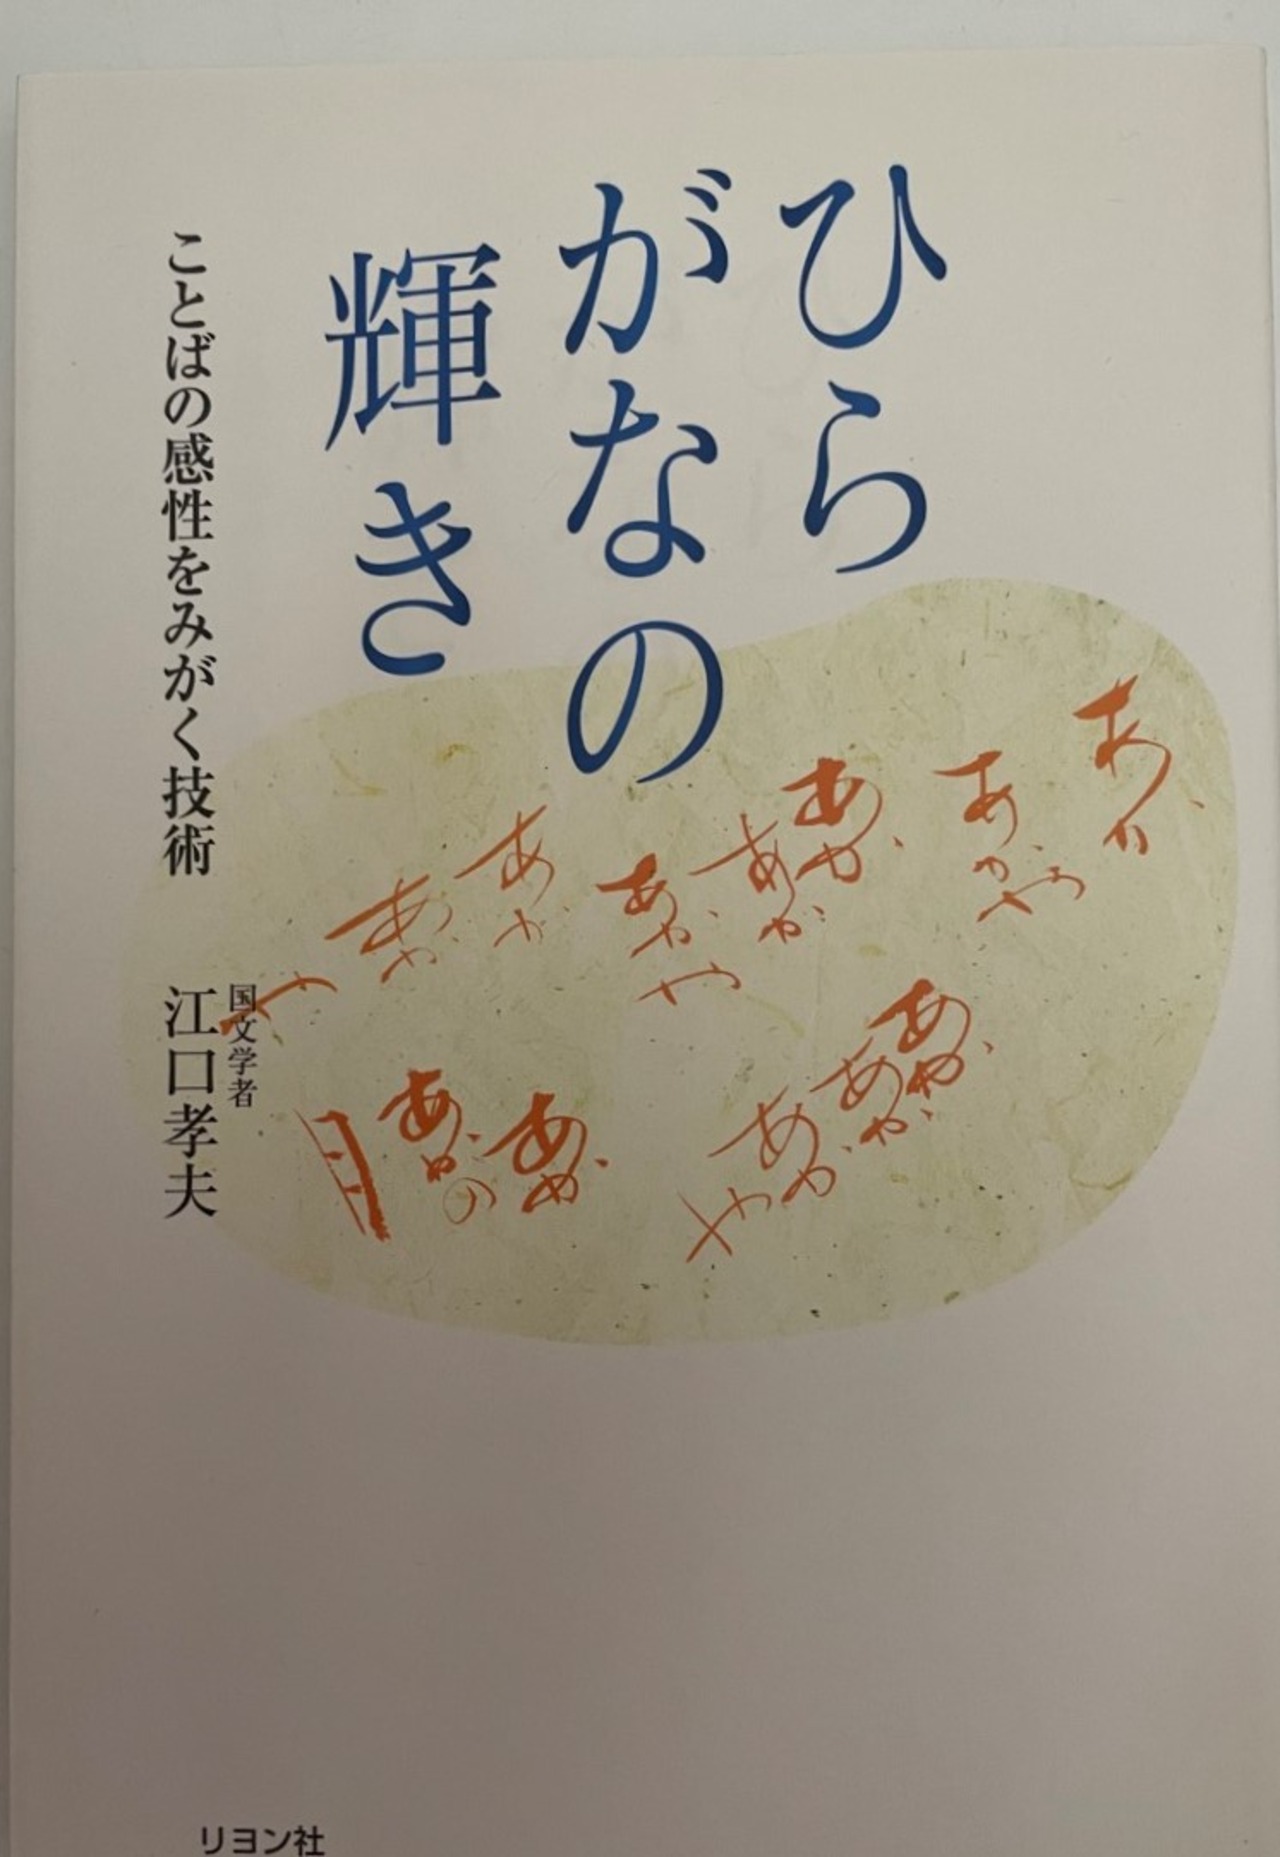 ひら
がなの
輝き
ことばの感性をみがく技術
国文学者
江口孝夫
あか
あかや
あか
あか
あかや
あか
あか
や
あか
あか
あか
や
あか
あかの
月
リヨン社